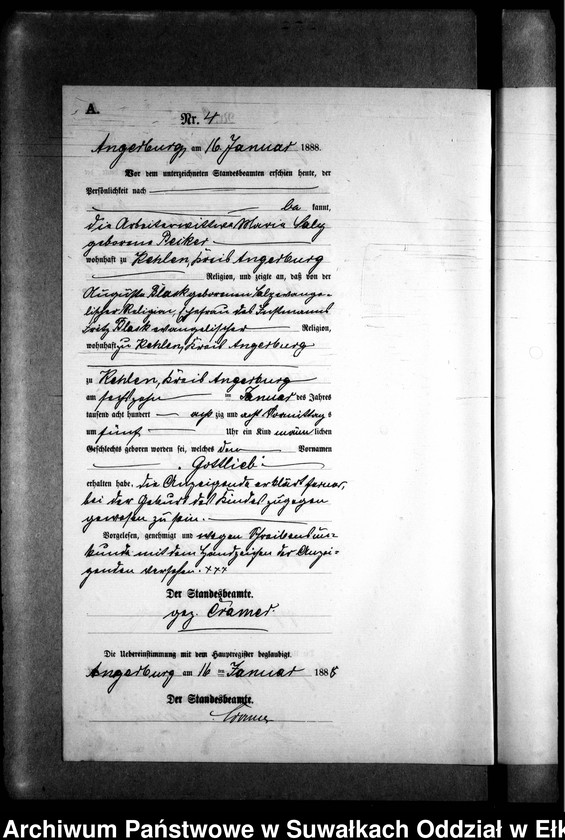 A.
Nr. 4
Angerburg, am 16. Januar 1888.
Vor dem unterzeichneten Standesbeamten erschien heute, der
Persönlichkeit nach
be kannt,
die Arbeiterwittwe Maria Salz
geborene Reiker
wohnhaft zu Kehlen, Kreis Angerburg
Religion, und zeigte an, daß von der
Auguste Klask geborenen Salz evange-
lischer Religion, Ehefrau des Instmanns
Fritz Klask evangelischer Religion,
wohnhaft zu Kehlen, Kreis Angerburg
zu Kehlen, Kreis Angerburg
am sechszehn ten Januar des Jahres
tausend acht hundert acht zig und acht Vormittag s
um fünf Uhr ein Kind männ lichen
Geschlechts geboren worden sei, welches den Vornamen
Gottlieb
erhalten habe. Die Anzeigende erklärt ferner,
bei der Geburt des Kindes zugegen
gewesen zu sein.
Vorgelesen, genehmigt und wegen Schreibensun-
kunde mit dem Handzeichen der Anzei-
genden versehen. xxx
Der Standesbeamte.
gez. Cramer.
Die Uebereinstimmung mit dem Hauptregister beglaubigt.
Angerburg am 16 ten Januar 1888
Der Standesbeamte.
Cramer
Archiwum Państwowe w Suwałkach Oddział w Ełk